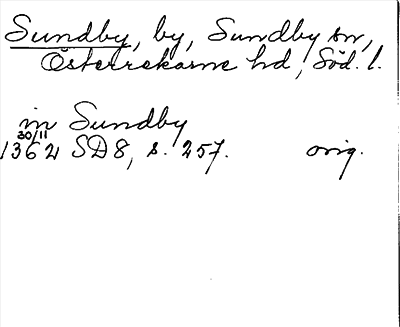 Sundby, by, Sundby sn,
Österrekarne hd, Söd. l.
in Sundby
30/11
1362 SD8, s. 257. orig.